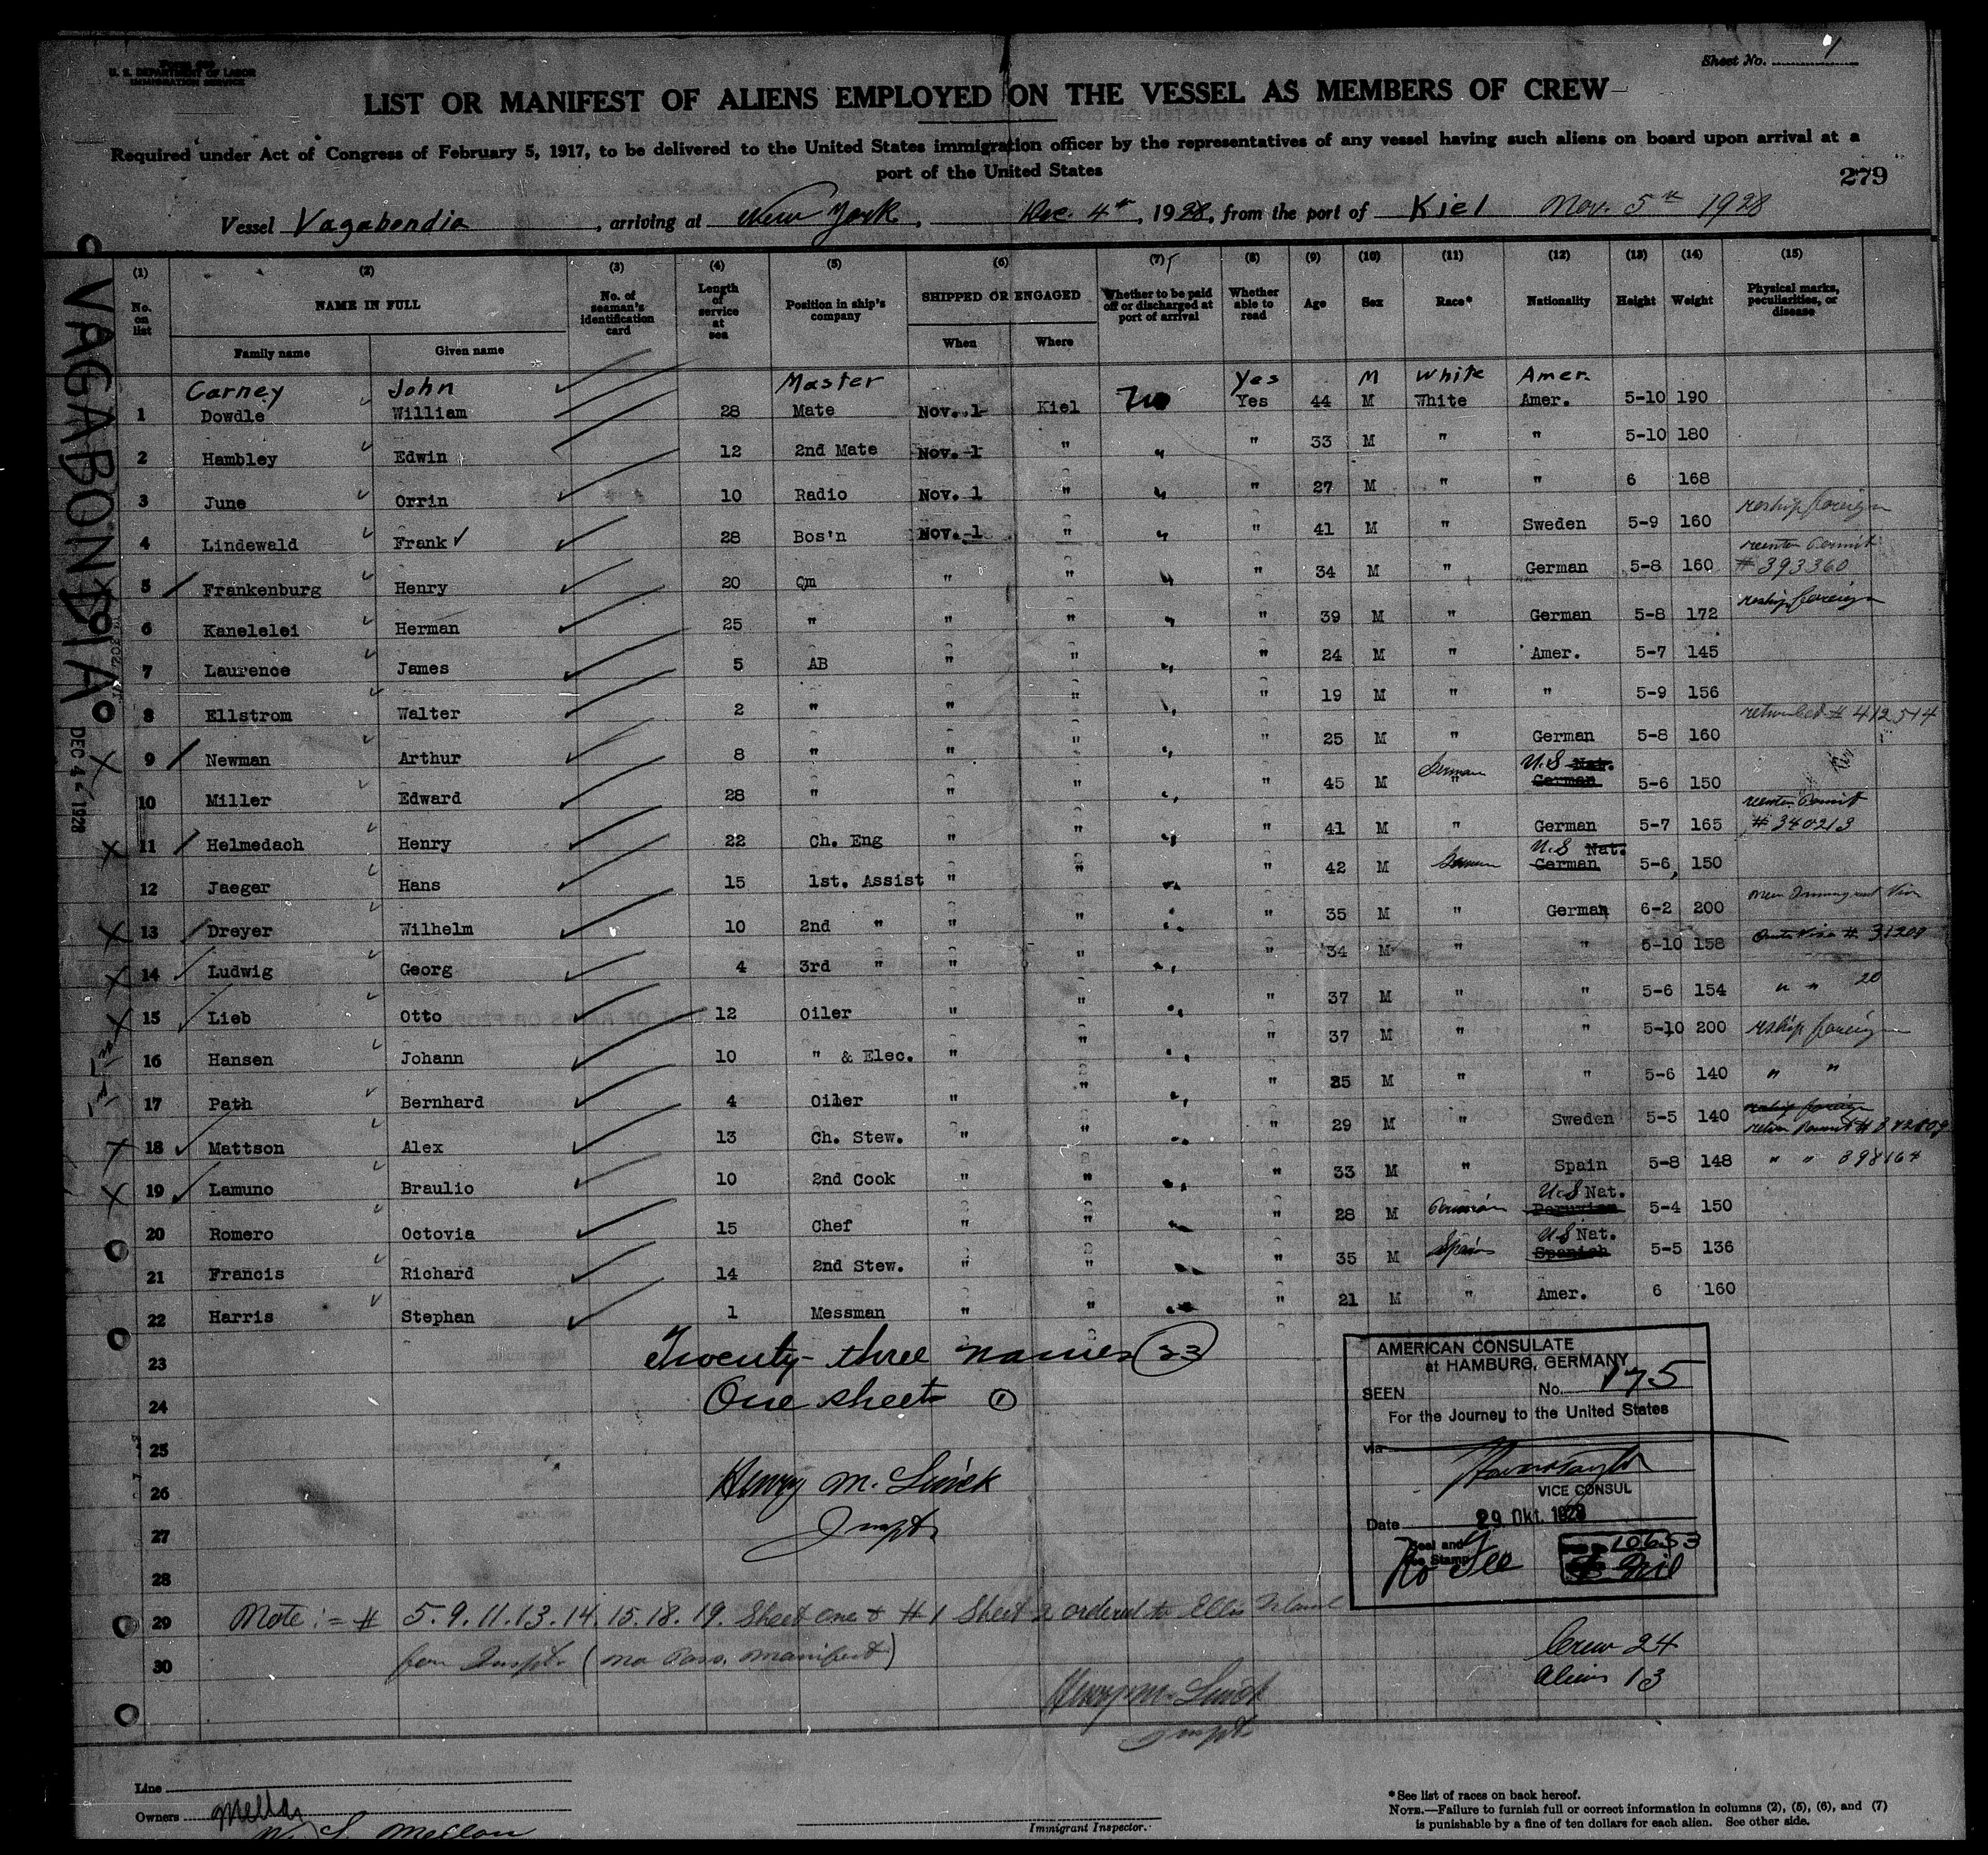 Form 689
U. S. DEPARTMENT OF LABOR
IMMIGRATION SERVICE
Sheet No. 1
LIST OR MANIFEST OF ALIENS EMPLOYED ON THE VESSEL AS MEMBERS OF CREW
Required under Act of Congress of February 5, 1917, to be delivered to the United States immigration officer by the representatives of any vessel having such aliens on board upon arrival at a
port of the United States
279
Vessel Vagabondia, arriving at New York, Dec. 4th, 1928, from the port of Kiel Nov. 5th 1928
VAGABONDIA
DEC 4 1928
(1) (2) (3) (4) (5) (6) (7) (8) (9) (10) (11) (12) (13) (14) (15)
No. on list NAME IN FULL No. of seaman's identification card Length of service at sea Position in ship's company SHIPPED OR ENGAGED Whether to be paid off or discharged at port of arrival Whether able to read Age Sex Race* Nationality Height Weight Physical marks, peculiarities, or disease
Family name Given name When Where
Carney John Master Yes M White Amer.
1 Dowdle William 28 Mate Nov. 1 Kiel No Yes 44 M White Amer. 5-10 190
2 Hambley Edwin 12 2nd Mate Nov. 1 " " " 33 M " " 5-10 180
3 June Orrin 10 Radio Nov. 1 " " " 27 M " " 6 168
4 Lindewald Frank 28 Bos'n Nov. 1 " " " 41 M " Sweden 5-9 160 reship foreign
5 Frankenburg Henry 20 Qm " " " " 34 M " German 5-8 160 reentry Permit # 393360
6 Kanelelei Herman 25 " " " " " 39 M " German 5-8 172 reship foreign
7 Laurence James 5 AB " " " " 24 M " Amer. 5-7 145
8 Ellstrom Walter 2 " " " " " 19 M " " 5-9 156
9 Newman Arthur 8 " " " " " 25 M " German 5-8 160 # 412514
10 Miller Edward 28 " " " " " 45 M German U.S Nat. German 5-6 150
11 Helmedach Henry 22 Ch. Eng " " " " 41 M " German 5-7 165 reentry Permit # 340213
12 Jaeger Hans 15 1st. Assist " " " " 42 M German U.S Nat. German 5-6 150
13 Dreyer Wilhelm 10 2nd " " " " " 35 M " German 6-2 200 Immigrant Visa
14 Ludwig Georg 4 3rd " " " " " 34 M " " 5-10 158 Visa # 31209
15 Lieb Otto 12 Oiler " " " " 37 M " " 5-6 154 " " 20
16 Hansen Johann 10 " & Elec. " " " " 37 M " " 5-10 200 reship foreign
17 Path Bernhard 4 Oiler " " " " 25 M " " 5-6 140 " "
18 Mattson Alex 13 Ch. Stew. " " " " 29 M " Sweden 5-5 140 reship foreign return Permit #
19 Lamuno Braulio 10 2nd Cook " " " " 33 M " Spain 5-8 148 " " 398164
20 Romero Octovia 15 Chef " " " " 28 M Peruvian U.S Nat. Peruvian 5-4 150
21 Francis Richard 14 2nd Stew. " " " " 35 M Spanish U S Nat. Spanish 5-5 136
22 Harris Stephan 1 Messman " " " " 21 M " Amer. 6 160
23 Twenty-three names (23)
24 One sheet (1)
25
26 Henry M.
27 Inspt.
28
29 Note:= # 5. 9. 11. 13. 14. 15. 18. 19. Sheet one & # 1 Sheet 2 ordered to Ellis Island
30 for Inspt. (no Pass. manifest)
Henry M.
Inspt.
AMERICAN CONSULATE
at HAMBURG, GERMANY
SEEN No. 175
For the Journey to the United States
via
VICE CONSUL
Date 29 Okt. 1928
Seal and
Fee Stamp
No Fee
Crew 24
Aliens 13
Line
Owners Mellon
W. L. Mellon
Immigrant Inspector.
*See list of races on back hereof.
NOTE.—Failure to furnish full or correct information in columns (2), (5), (6), and (7)
is punishable by a fine of ten dollars for each alien. See other side.